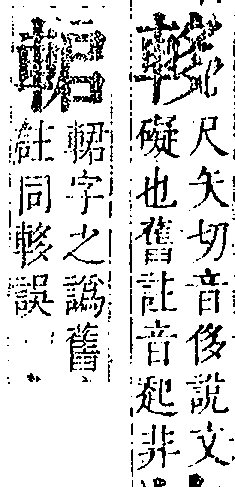 尺矢切音侈說文
礙也舊註音起非
輑字之譌舊
註同誤